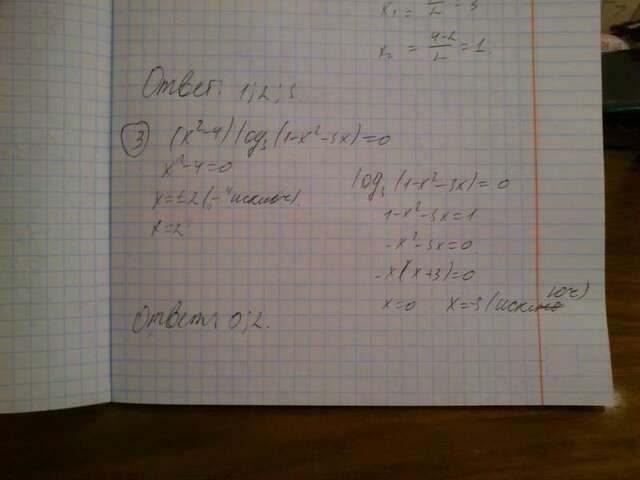 x₂ = (4-2)/2 = 1.
Ответ: 1; 2; 3.
③ (x²-4) log₃(1-x²-3x)=0
x²-4=0
x=±2
x=2
log₃(1-x²-3x)=0
1-x²-3x=1
-x²-3x=0
-x(x+3)=0
x=0 x=-3 (исключ)
Ответ: 0; 2.